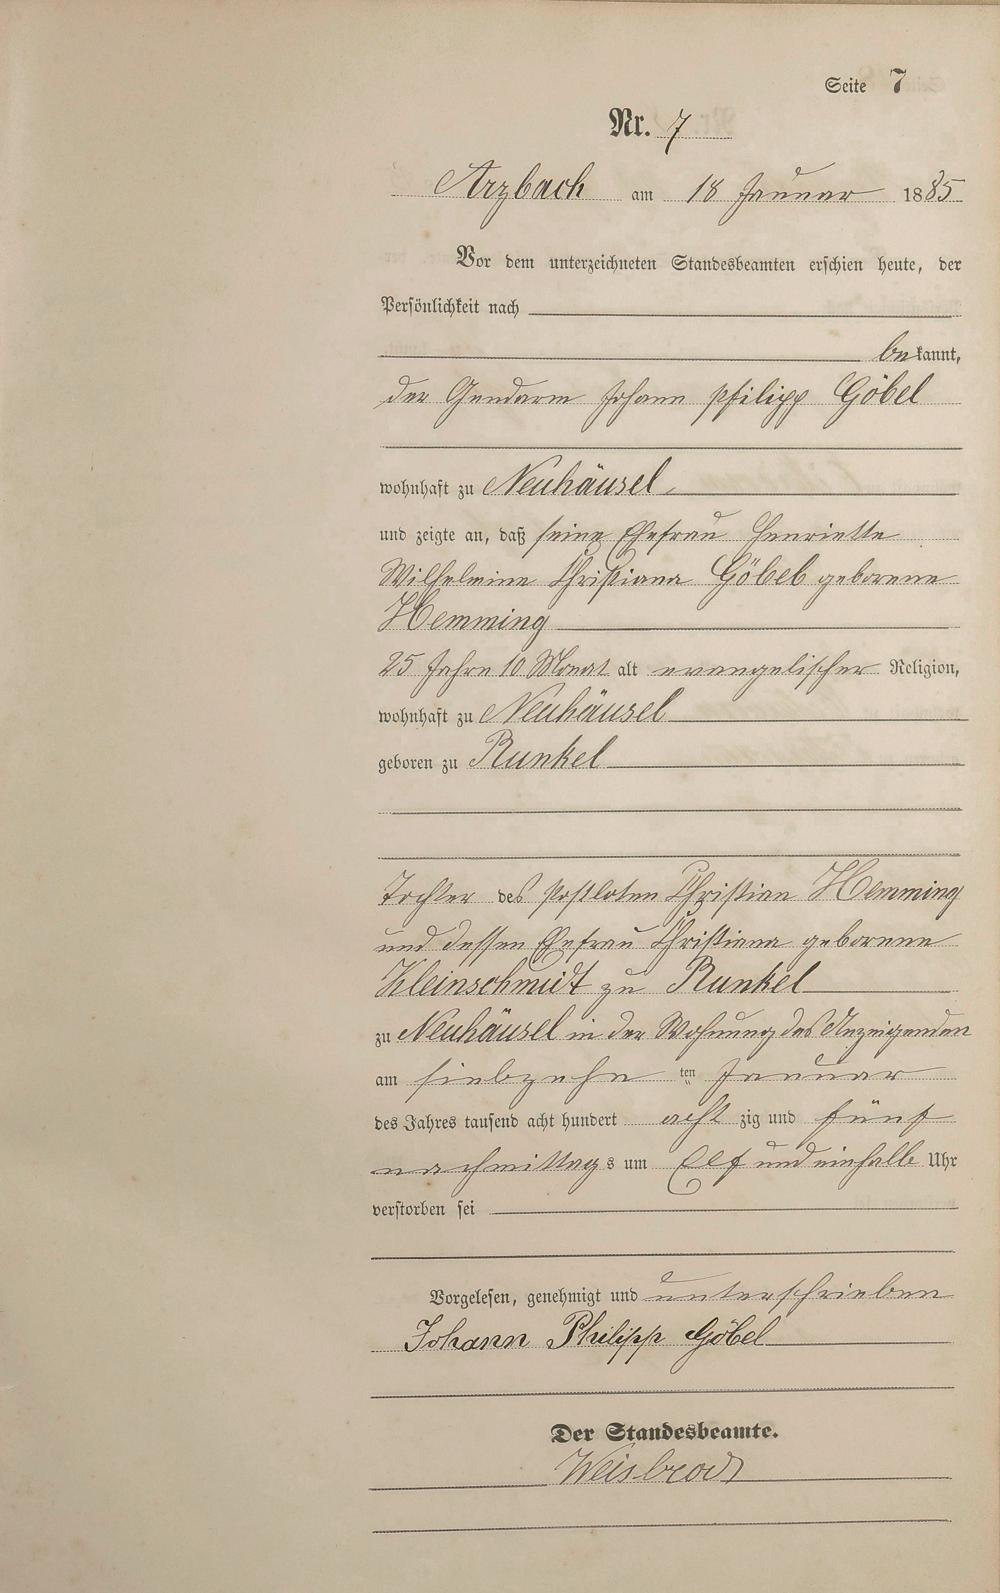 Seite 7
Nr. 7
Arzbach am 18 Januar 1885
Vor dem unterzeichneten Standesbeamten erschien heute, der
Persönlichkeit nach
bekannt,
der Gendarm Johann Philipp Göbel
wohnhaft zu Neuhäusel,
und zeigte an, daß seine Ehefrau Henriette
Wilhelmine Christiana Göbel geborene
Hemming
25 Jahre 10 Monat alt evangelischer Religion,
wohnhaft zu Neuhäusel
geboren zu Runkel
Tochter des Postboten Christian Hemming
und dessen Ehefrau Christiana geborene
Kleinschmidt zu Runkel
zu Neuhäusel in der Wohnung des Anzeigenden
am siebzehn ten Januar
des Jahres tausend acht hundert acht zig und fünf
nachmittags um Elf und einhalb Uhr
verstorben sei
Vorgelesen, genehmigt und unterschrieben
Johann Philipp Göbel
Der Standesbeamte.
Weisbrod